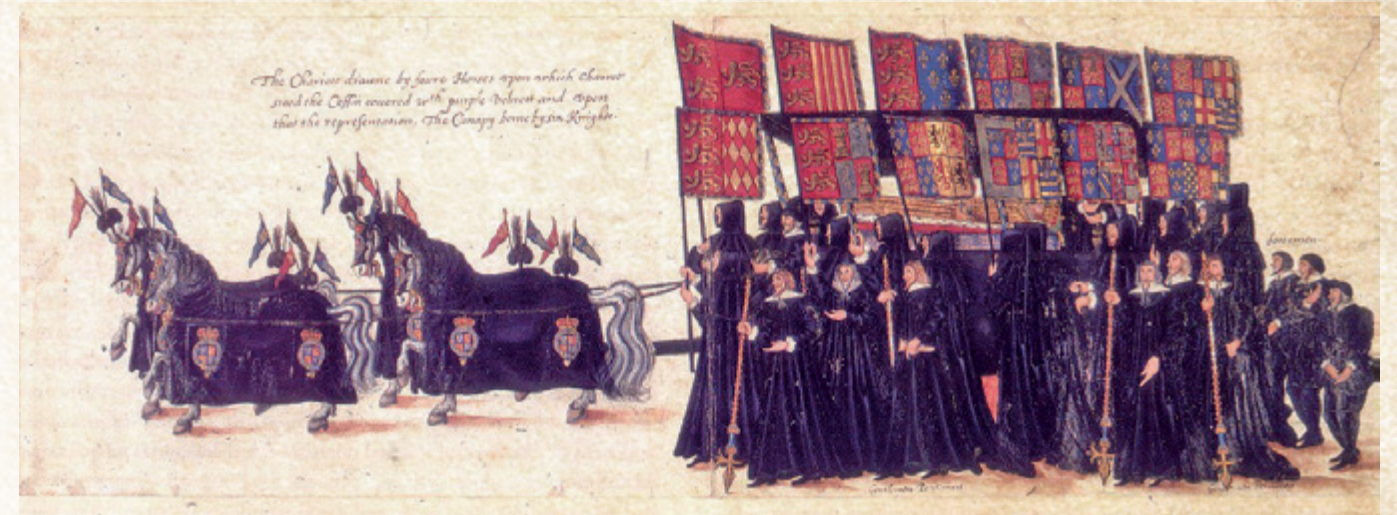 The Chariott drawne by foure Horses vpon which Charret
stood the Coffin couered wth purple Veluett and vpon
that the representation, The Canapy borne by six Knights.
footemen
Gentlemen Pentioners